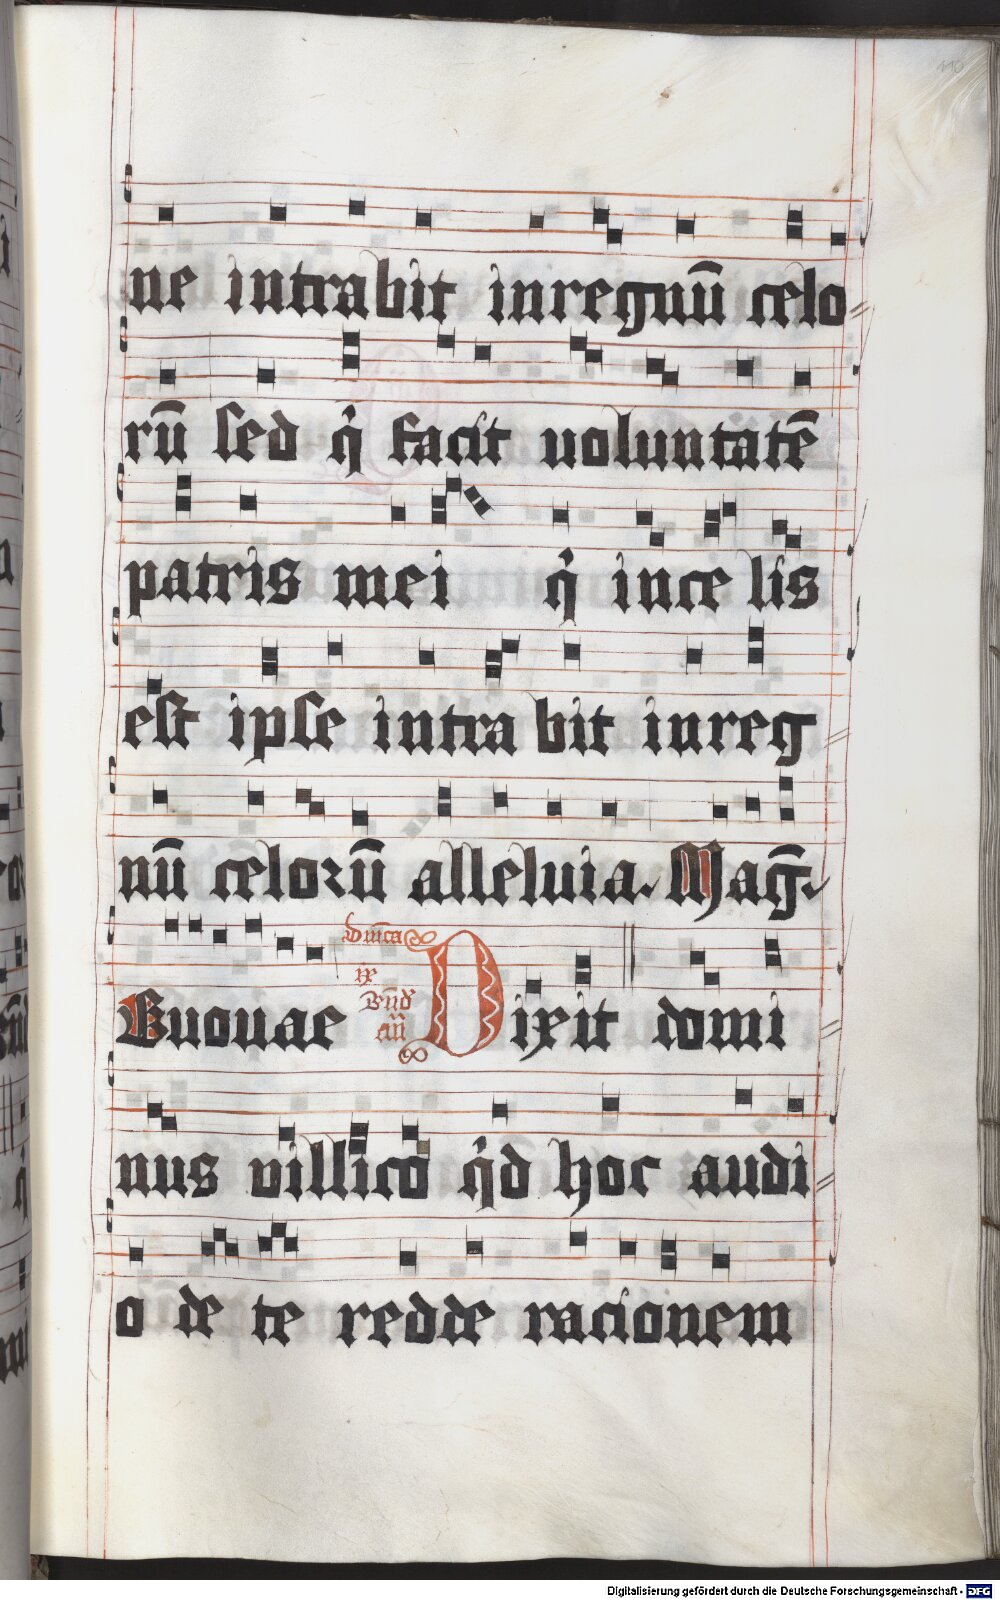 110
ne intrabit inregnū celo
rū sed q̇ facit uoluntatē
patris mei q̇ ince lis
est ipse intra bit inreg
nū celorū alleluia. Mag̅.
Euouae
Dn̄ica
ix
Bn̄d
an̄
Dixit domi
nus villico q̇d hoc audi
o de te redde racionem
Digitalisierung gefördert durch die Deutsche Forschungsgemeinschaft - DFG